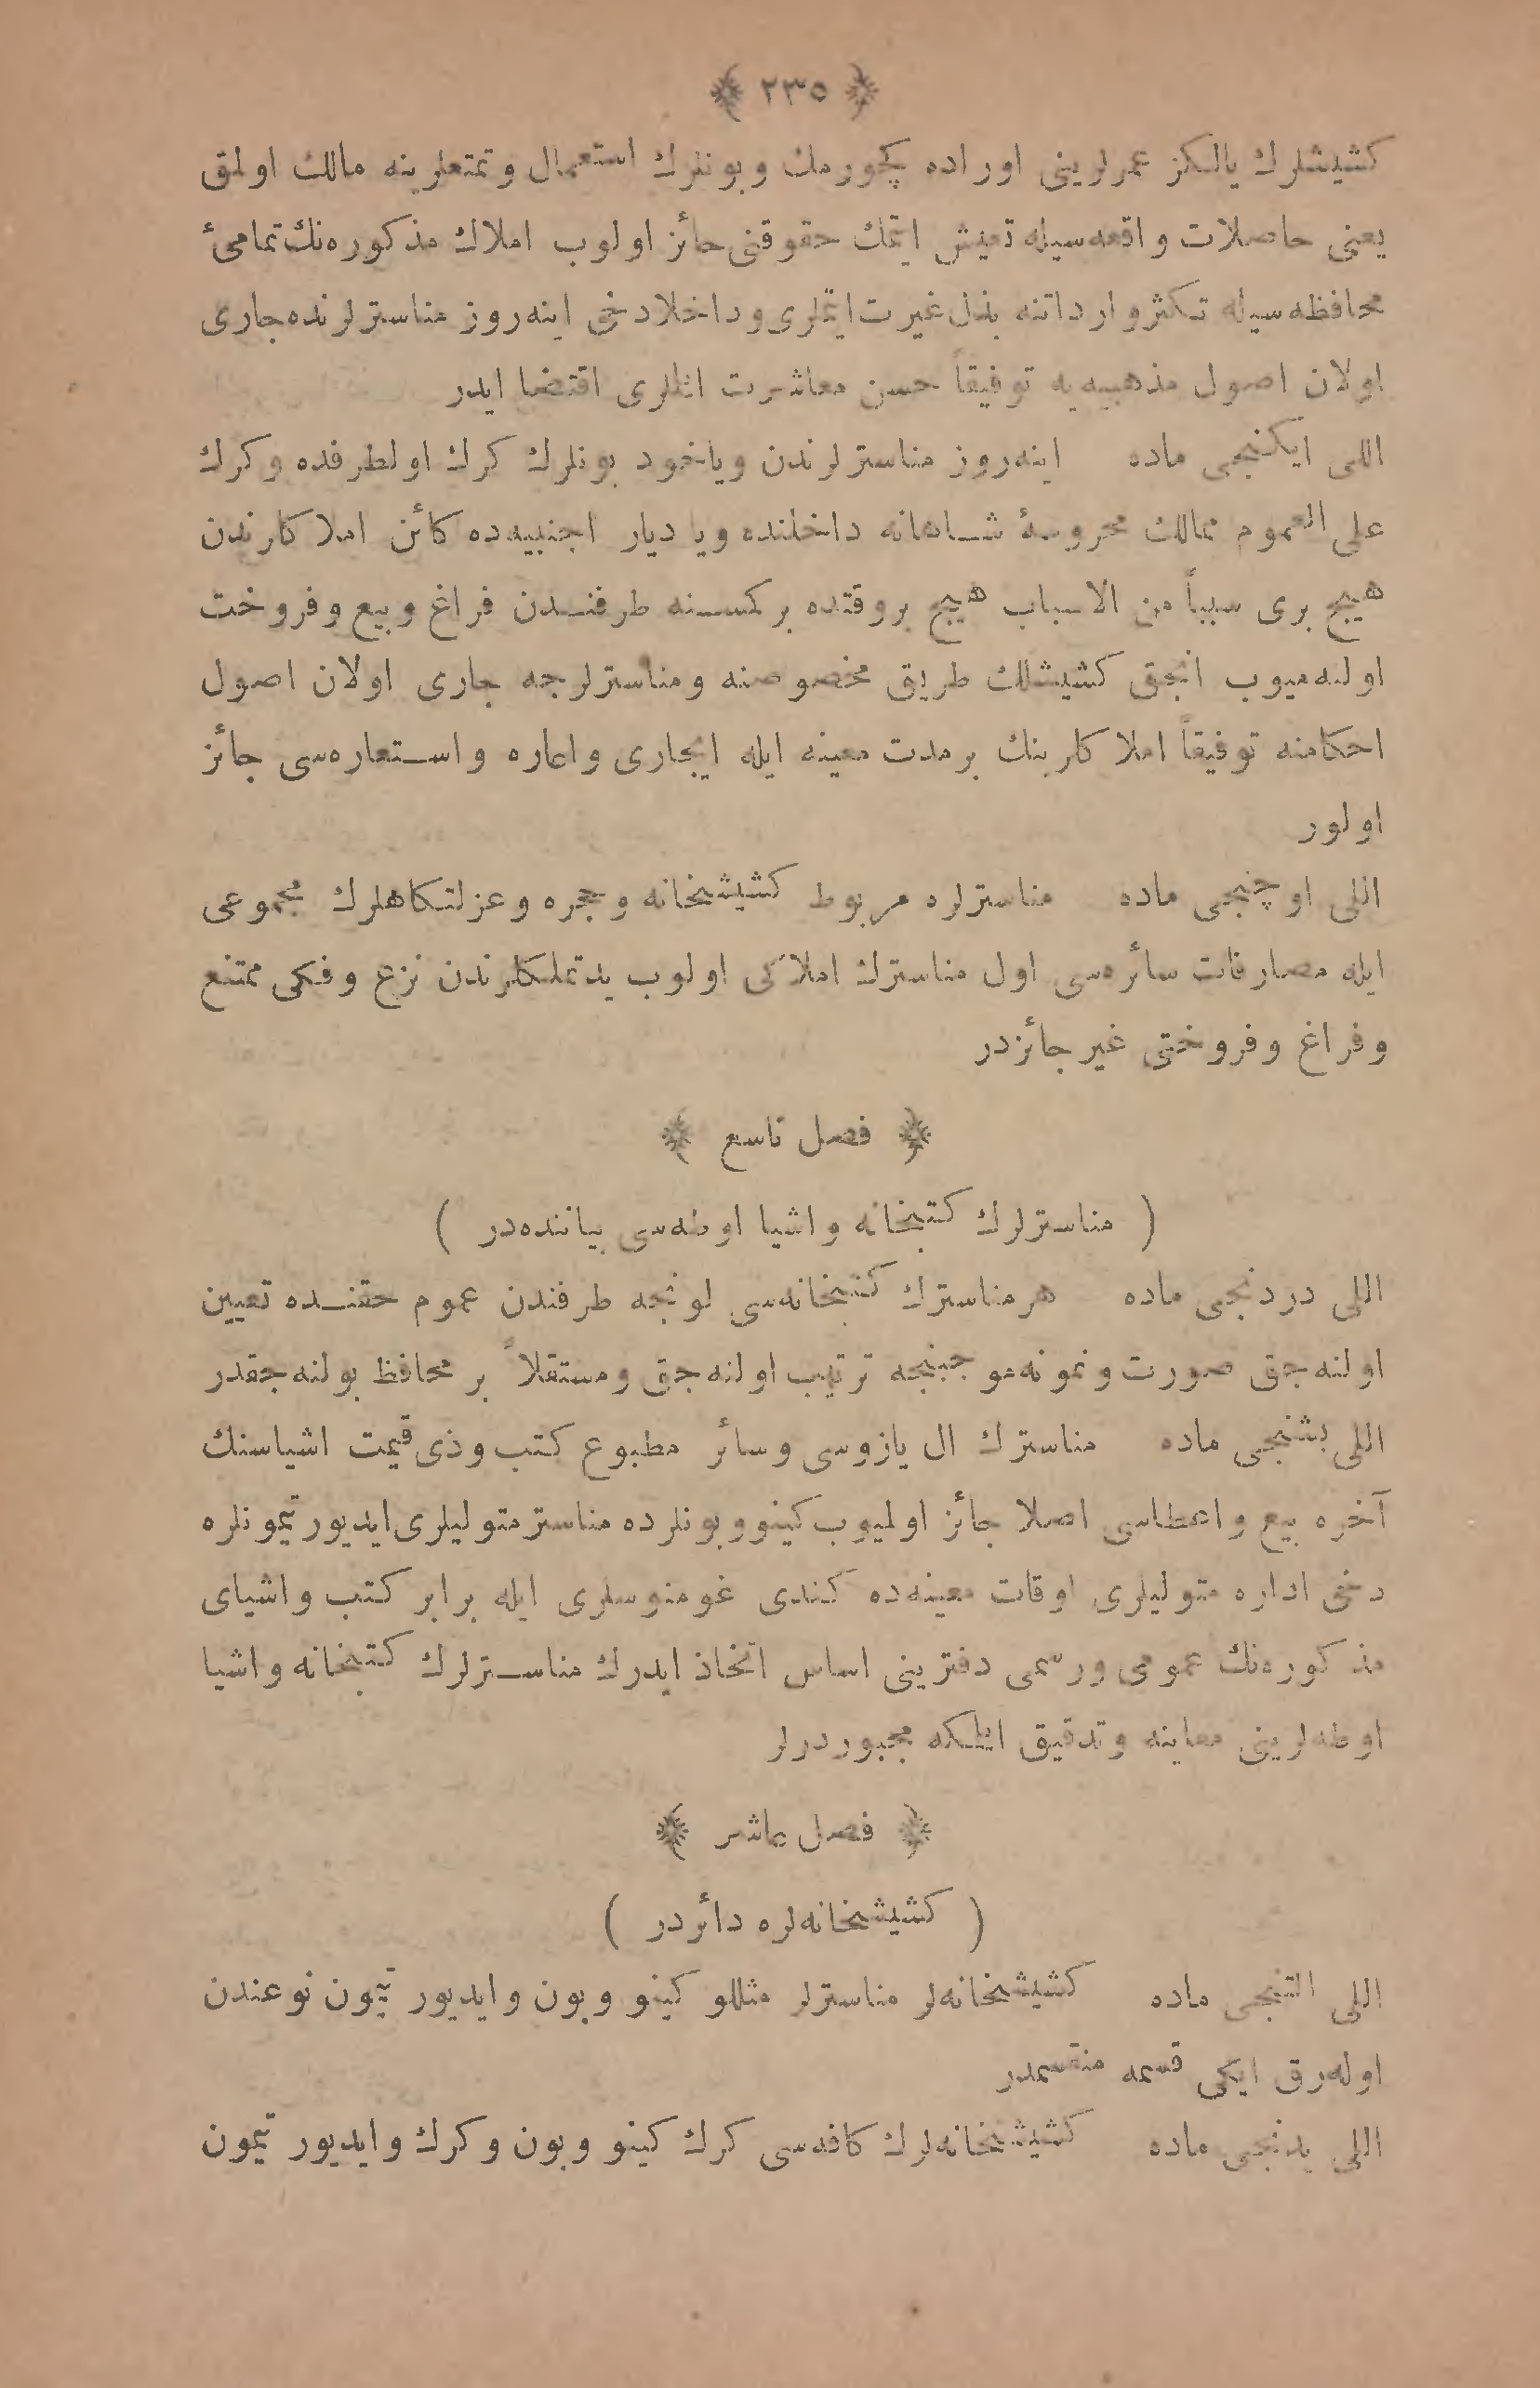 ﴿ ٢٣٥ ﴾
كشيشلرك يالكز عمرلرينى اوراده كچورمك وبونلرك استعمال وتمتعلرينه مالك اولمق
يعنى حاصلات واقعه‌سيله تعيش ايتمك حقوقنى حائز اولوب املاك مذكوره‌نك تمامئ
محافظه‌سيله تكثر وارداتنه بذل غيرت ايتملرى وداخلا دخى اينه‌روز مناسترلرنده جارى
اولان اصول مذهبيه‌يه توفيقاً حسن معاشرت اتملرى اقتضا ايدر
اللى ايكنجى ماده اينه‌روز مناسترلرندن وياخود بونلرك كرك اولطرفده وكرك
على العموم ممالك محروسهٔ شاهانه داخلنده ويا ديار اجنبيه‌ده كائن املاكلرندن
هيچ برى سبباً من الاسباب هيچ بروقتده بر كمسنه طرفندن فراغ وبيع وفروخت
اولنه‌ميوب انجق كشيشلك طريق مخصوصنه ومناسترلرجه جارى اولان اصول
احكامنه توفيقاً املاكلرينك بر مدت معينه ايله ايجارى واعاره واستعاره‌سى جائز
اولور
اللى اوچنجى ماده مناسترلره مربوط كشيشخانه وحجره وعزلتكاهلرك مجموعى
ايله مصارفات سائره‌سى اول مناسترك املاكى اولوب يدتملكلرندن نزع وفكى ممتنع
وفراغ وفروختى غير جائزدر
﴿ فصل تاسع ﴾
( مناسترلرك كتبخانه واشيا اوطه‌سى بياننده‌در )
اللى دردنجى ماده هر مناسترك كتبخانه‌سى لونجه طرفندن عموم حقنده تعيين
اولنه‌جق صورت ونمونه موجبنجه ترتيب اولنه‌جق ومستقلاً بر محافظ بولنه‌جقدر
اللى بشنجى ماده مناسترك ال يازوسى وسائر مطبوع كتب وذى قيمت اشياسنك
آخره بيع واعطاسى اصلا جائز اولميوب كينوويونلرده مناستر متوليلرى ايديورتيمونلره
دخى اداره متوليلرى اوقات معينه‌ده كندى غومنوسلرى ايله برابر كتب واشياى
مذكوره‌نك عمومى ورسمى دفترينى اساس اتخاذ ايدرك مناسترلرك كتبخانه واشيا
اوطه‌لرينى معاينه وتدقيق اتمكه مجبوردرلر
﴿ فصل عاشر ﴾
( كشيشخانه‌لره دائردر )
اللى التنجى ماده كشيشخانه‌لر مناسترلر مثللو كينوويون وايديورتيمون نوعندن
اوله‌رق ايكى قسمه منقسمدر
اللى يدنجى ماده كشيشخانه‌لرك كافه‌سى كرك كينوويون وكرك وايديورتيمون